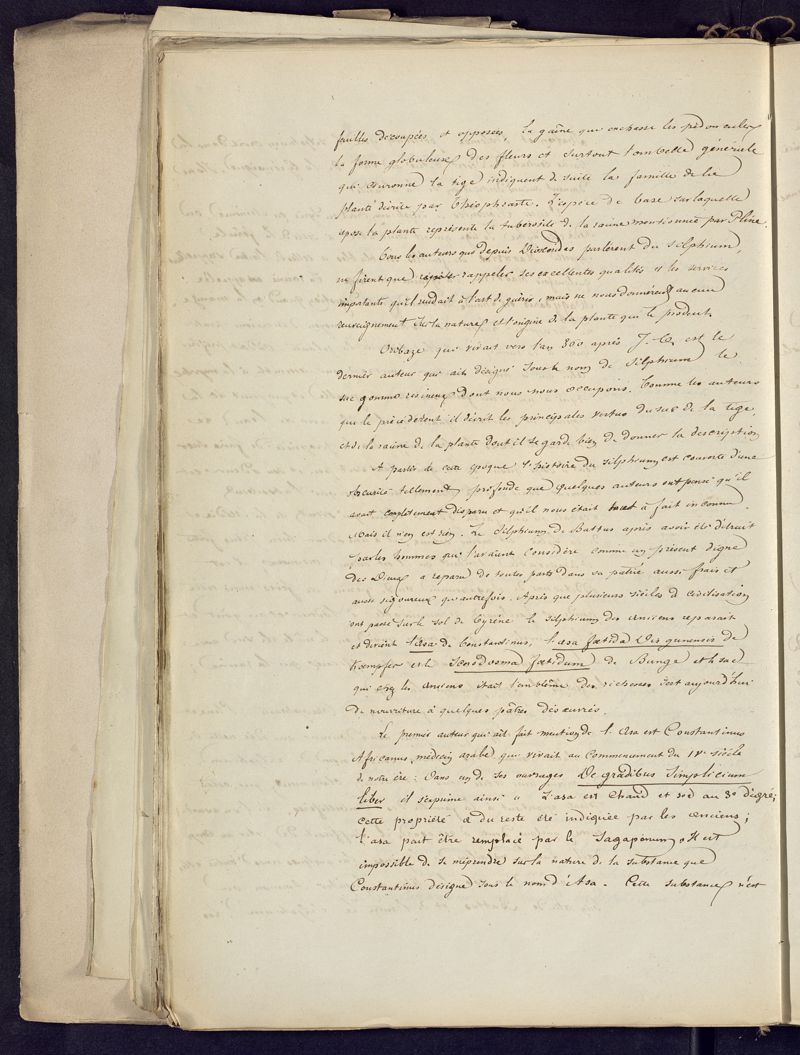 feuilles découpées et opposées, la gaîne que enchasse les pédoncules
la forme globuleuse des fleurs et surtout l'ombelle générale
qui couronne la tige indiquent de suite la famille de la
plante décrite par Théophraste. L'espèce de base sur laquelle
repose la plante représente la tuberosité de la racine mentionnée par Pline.
Tous les auteurs que depuis Dioscorides parlerent du Silphium,
ne firent que rappeler ses excellentes qualités et les services
importants qu'il rendait à l'art de guérir, mais ne nous donnèrent aucun
renseignement sur la nature et l'origine de la plante qui le produit.
Oribaze qui vivait vers l'an 300 après J. C. est le
dernier auteur qui ait désigné sous le nom de Silphium le
suc gommo resineux dont nous nous occupons. Comme les auteurs
qui le précédèrent il décrit les principales vertus du suc de la tige,
et de la racine de la plante dont il se garde bien de donner la description
A partir de cette époque l'histoire du Silphium est couverte d'une
obscurité tellement profonde que quelques auteurs ont pensé qu'il
avait complètement disparu et qu'il nous était tout à fait inconnu
Mais il n'en est rien. Le Silphium de Battus après avoir été détruit
par les hommes qui l'avaient considéré comme un présent digne
des Dieux a reparu de toutes parts dans sa patrie aussi frais et
aussi vigoureux qu'autrefois. Après que plusieurs siècles de civilisation
ont passé sur le sol de Cyrène le Silphium des anciens reparait
et devient l'Asa de Constantinus, l'asa foetida Disgunensis de
Koempfer et le Scorodosma foetidum de Bunge et le suc
qui chez les anciens était l'emblême des richesses sert aujourd'hui
de nourriture à quelques pâtres désœuvrés.
Le premier auteur qui ait fait mention de l'Asa est Constantinus
Africanus, médecin arabe qui vivait au commencement du IVe siècle
de notre ère : Dans un de ses ouvrages De gradibus Simplicium
liber il s'exprime ainsi " L'asa est chaud et sec au 3e dégré;
cette propriété a du reste été indiquée par les anciens;
l'asa peut être remplacé par le Sagapenum " Il est
impossible de se méprendre sur la nature de la substance que
Constantinus désigne sous le nom d'Asa. Cette substance n'est